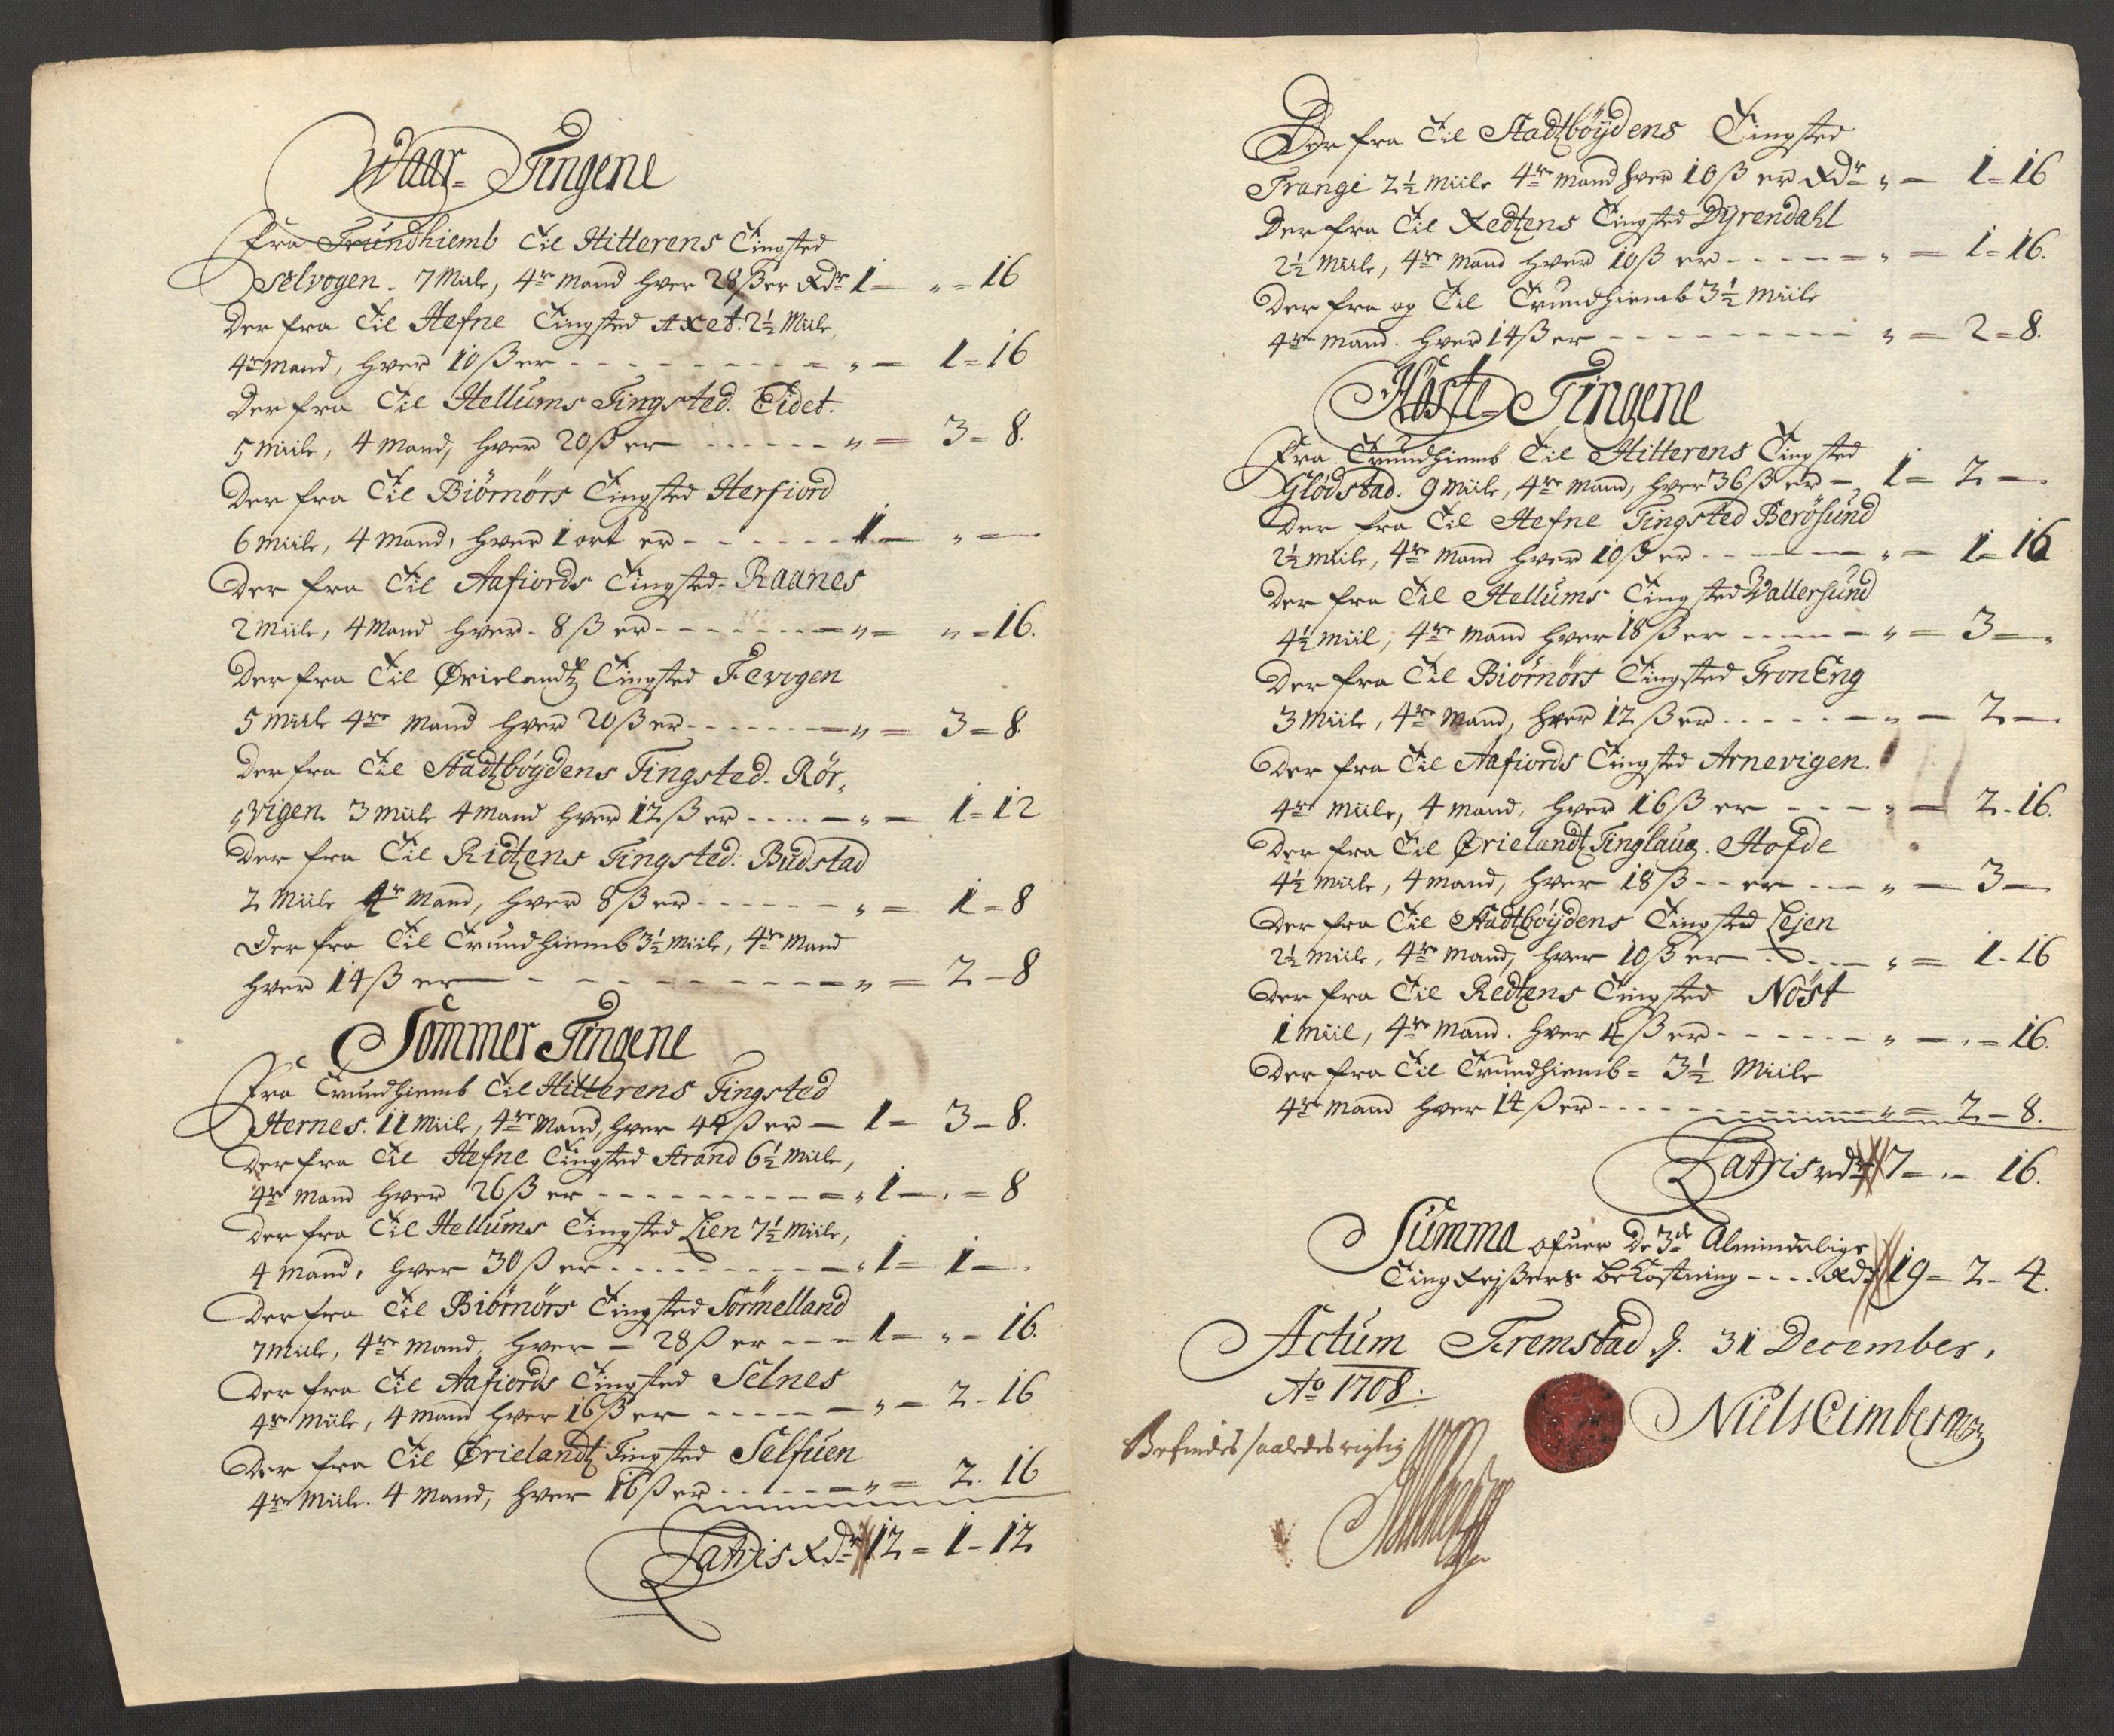 Waar- Tingene
Fra Trundhiemb Til Hitterens Tingsted
Selvogen. 7 Miile, 4re Mand hver 28 ß er Rdr 1 – „ – 16
Der fra Til Hefne Tingsted Axet. 2½ Miile,
4re Mand, hver 10 ß er - - - - - - - „ – 1 – 16
Der fra Til Hellums Tingsted. Eidet.
5 Miile, 4 Mand, hver 20 ß er - - - - - - „ – 3 – 8.
Der fra Til Biörnörs Tingsted Herfiord
6 Miile, 4 Mand, hver 1 ort er - - - - - - 1 – „ –
Der fra Til Aafiords Tingsted- Raanes
2 Miile, 4 Mand hver - 8 ß er - - - - - - „ – „ – 16.
Der fra Til Ørielandtz Tingsted Fevogen
5 Miile 4re Mand hver 20 ß er - - - - - - „ – 3 – 8.
Der fra Til Stadtbøydens Tingsted. Rör,
„vigen 3 Miile 4 Mand hver 12 ß er - - - - „ – 1 – 12
Der fra Til Ridtzens Tingsted. Budstad
2 Miile 4re Mand, hver 8 ß er - - - - - - „ – 1 – 8
Der fra Til Trundhiemb 3½ Miile, 4re Mand
hver 14 ß er - - - - - - - - - „ – 2 – 8
Sommer Tingene
Fra Trundhiemb Til Hitterens Tingsted
Hernes. 11 Miile, 4re Mand, hver 44 ß er – 1 – 3 – 8.
Der fra Til Hefne Tingsted Strand 6½ Miile,
4re Mand hver 26 ß er - - - - - - - - „ 1 – „ – 8
Der fra Til Hellums Tingsted Lien 7½ Miile,
4 Mand, hver 30 ß er - - - - - - - - „ 1 – 1 – „
Der fra Til Biörnörs Tingsted Sörmelland
7 Miile, 4re Mand, hver – 28 ß er - - - 1 – „ – 16.
Der fra Til Aafiords Tingsted Selnes
4re Miile, 4 Mand hver 16 ß er - - - - - „ – 2 – 16
Der fra Til Ørielandtz Tingsted Selfuen
4re Miile. 4 Mand, hver 16 ß er - - - - - „ – 2. 16
Latris Rdr 12 – 1 – 12
Der fra Til Stadtbøydens Tingsted
Trangi 2½ Miile 4re Mand hver 10 ß er Rdr „ – 1 – 16
Der fra Til Redtzens Tingsted Dyrendahl
2½ Miile, 4re Mand hver 10 ß er - - - - - „ – 1 – 16.
Der fra og Til Trundhiemb 3½ Miile
4re Mand. hver 14 ß er - - - - - - - - „ – 2 – 8.
Höste Tingene
Fra Trundhiemb Til Hitterens Tingsted
Glödstad. 9 Miile, 4re Mand, hver 36 ß er – 1 – 2 –.
Der fra Til Hefne Tingsted Berösund
2½ Miile, 4re Mand hver 10 ß er - - - - - „ – 1 – 16
Der fra Til Hellums Tingsted Vallersund
4½ Miil, 4re Mand hver 18 ß er - - - - - „ – 3 – „
Der fra Til Biörnörs Tingsted TronEng
3 Miile, 4re Mand, hver 12 ß er - - - - - „ – 2 –.
Der fra Til Aafiords Tingsted Arnevigen.
4re Miile, 4 Mand, hver 16 ß er - - - „ – 2 – 16.
Der fra Til Ørielandtz Tinglaug. Hofde
4½ Miile, 4 Mand, hver 18 ß - - er - - - „ – 3 –
Der fra Til Stadtbøydens Tingsted Lejen
2½ Miile, 4re Mand, hver 10 ß er - - - - „ – 1 – 16
Der fra Til Redtzens Tingsted Nöst
1 Miil, 4re Mand. hver 4 ß er - - - - - - „ – „ – 16.
Der fra Til Trundhiemb – 3½ Miile
4re Mand hver 14 ß er - - - - - - - - „ – 2 – 8.
Latris rdr 7 – „ – 16.
Summa ofuer de 3de Almindelige
Ting Rejßers bekostning - - - - Rdr 19 – 2 – 4.
Actum Tremstad d. 31 December,
Ao 1708.
Niels Cimber
Befindes saaledes rigtig